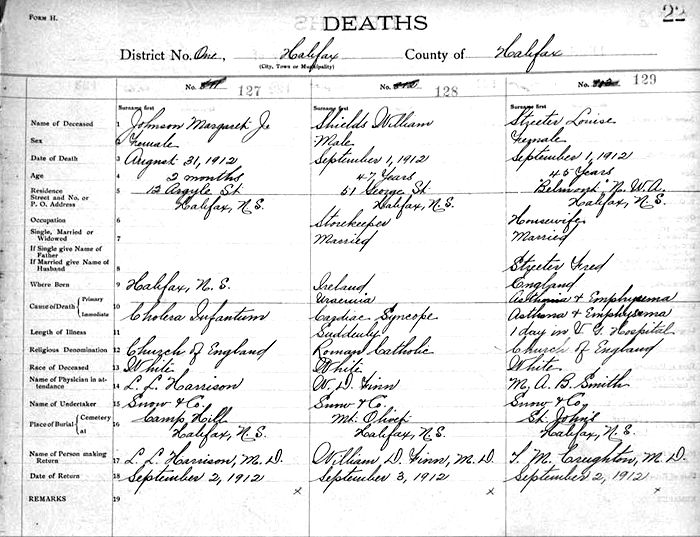 FORM H.
DEATHS
22
District No. One, Halifax County of Halifax
(City, Town or Municipality)
No. 127 No. 128 No. 129
Surname first Surname first Surname first
Name of Deceased 1 Johnson Margaret Je Shields William Streeter Louise
Sex 2 Female Male Female
Date of Death 3 August 31, 1912 September 1, 1912 September 1, 1912
Age 4 2 months 47 Years 45 Years
Residence 5 12 Argyle St 51 George St "Belmont" N. W. A.
Street and No. or
P. O. Address Halifax, N.S. Halifax, N.S. Halifax, N.S.
Occupation 6 Storekeeper Housewife
Single, Married or
Widowed 7 Married Married
If Single give Name of
Father
If Married give Name of
Husband 8 Streeter Fred
Where Born 9 Halifax, N.S. Ireland England
Cause of Death Primary Uraemia Asthma & Emphysema
Immediate 10 Cholera Infantum Cardiac Syncope Asthma & Emphysema
Length of Illness 11 Suddenly 1 day in V. G. Hospital
Religious Denomination 12 Church of England Roman Catholic Church of England
Race of Deceased 13 White White White
Name of Physician in at-
tendance 14 L. L. Harrison W. D. Finn M. A. B. Smith
Name of Undertaker 15 Snow & Co. Snow & Co. Snow & Co.
Place of Burial Cemetery 16 Camp Hill Mt. Olivet St. John's
at Halifax, N.S. Halifax, N.S. Halifax, N.S.
Name of Person making
Return 17 L. L. Harrison, M. D. William D. Finn, M. D. M. Creighton, M. D.
Date of Return 18 September 2, 1912 September 3, 1912 September 2, 1912
REMARKS 19 x x x